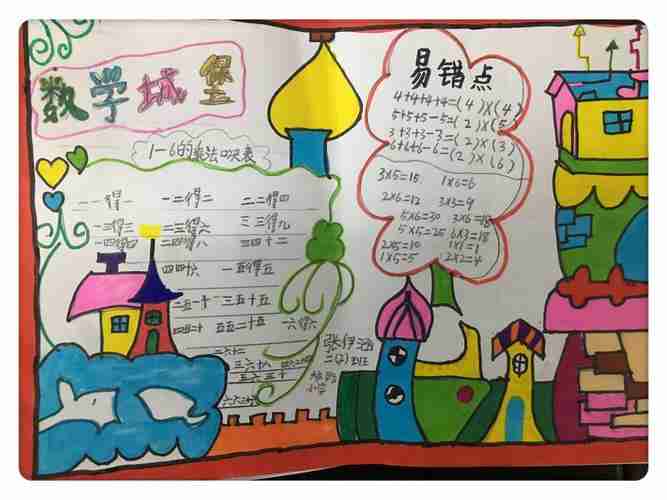 数学城堡
1-6的乘法口诀表
一一得一 一二得二 二二得四
一三得三 二三得六 三三得九
一四得四 二四得八 三四十二
四四十六 一五得五
二五一十 三五十五
四五二十 五五二十五 一六得六
二六十二
三六十八 四六二十四
五六三十
六六三十六
易错点
4+4+4+4=(4)×(4)
5+5+5-5=(2)×(5)
3+3+3-3=(2)×(3)
6+6+6-6=(2)×(6)
3×5=15 1×6=6
2×6=12 3×3=9
5×6=30 3×6=18
5×5=25 6×3=18
2×5=10 1×1=1
1×5=5 2×2=4
张伊涵
二(2)班
小学